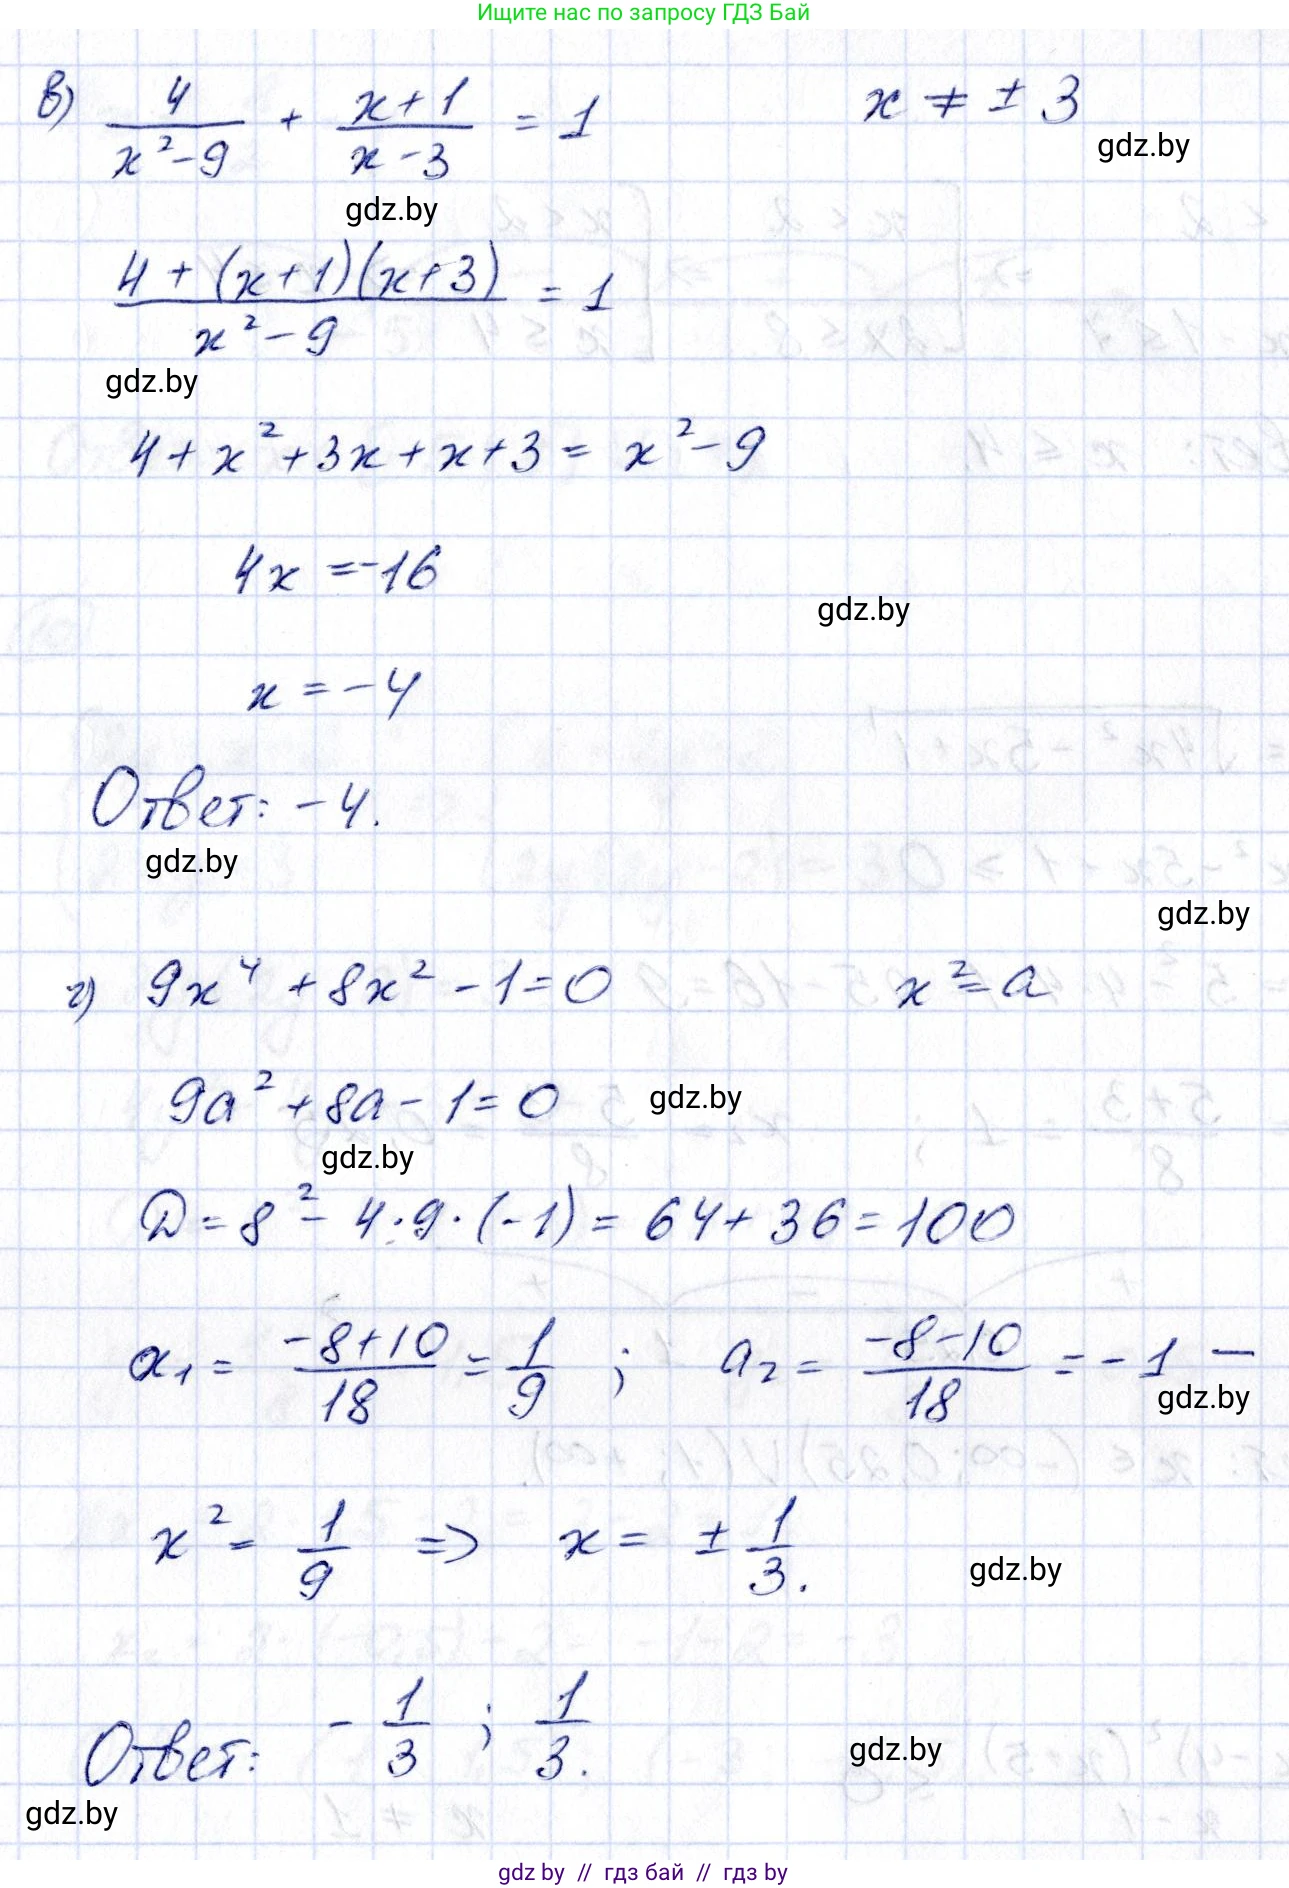 Ищите нас по запросу ГДЗ Бай
в) 4/(x²-9) + (x+1)/(x-3) = 1 x ≠ ± 3
gdz.by
gdz.by
(4 + (x+1)(x+3))/(x²-9) = 1
gdz.by
4 + x² + 3x + x + 3 = x² - 9
4x = -16
gdz.by
x = -4
Ответ: -4.
gdz.by
gdz.by
г) 9x⁴ + 8x² - 1 = 0 x² = a
9a² + 8a - 1 = 0 gdz.by
gdz.by
D = 8² - 4·9·(-1) = 64 + 36 = 100
a₁ = (-8+10)/18 = 1/9 ; a₂ = (-8-10)/18 = -1 —
gdz.by
x² = 1/9 => x = ± 1/3.
gdz.by
Ответ: -1/3 ; 1/3.
gdz.by
gdz.by
gdz by // гдз бай // гдз by